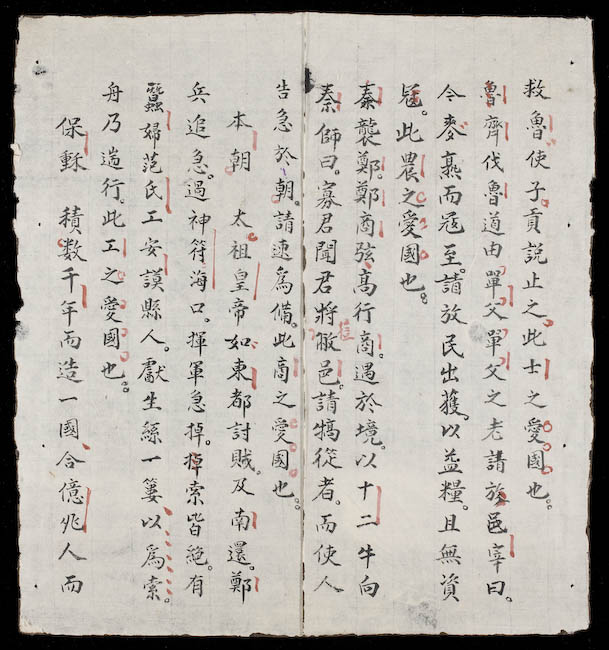 救魯使子貢說止之。此士之愛國也。
魯齊伐魯道由單父單父之老請放邑宰曰。
今麥熟而冦至。請放民出穫。以益糧。且無資
冦。此農之愛國也。
秦襲鄭。鄭商弦高行商。遇於境。以十二牛向
秦師曰。寡君聞君將敝邑。請犒從者。而使人
告急於朝。請速爲備。此商之愛國也。
本朝 太祖皇帝如東都討賊。及南還。鄭
兵追急。過神符海口。揮軍急掉。掉索皆絕。有
蠶婦范氏工安謨縣人。獻生絲一簍以爲索。
舟乃遄行。此工之愛國也。
保穌 積数千年而造一國。合億兆人而